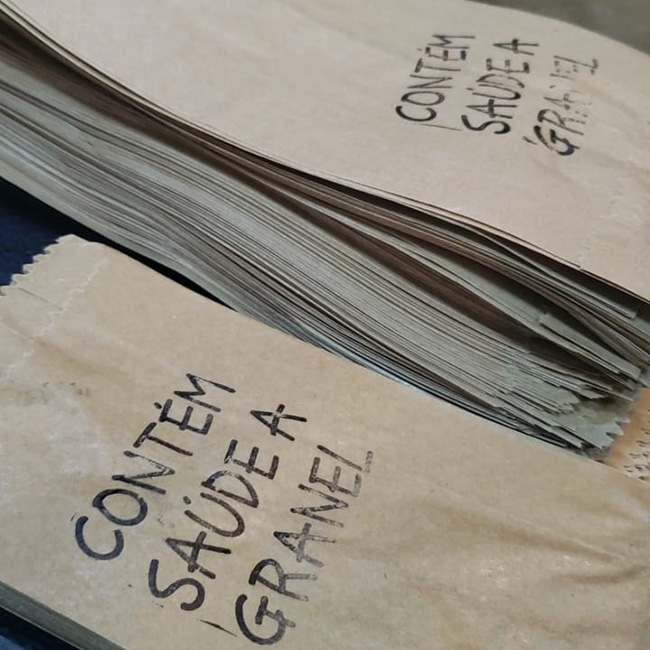 CONTÉM
SAÚDE A
GRANEL
CONTÉM
SAÚDE A
GRANEL